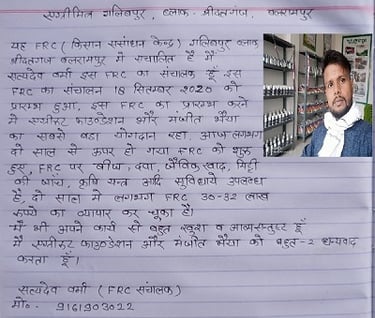 एग्रीमित्र गलिबपुर, ब्लाक- श्रीदत्तगंज, बलरामपुर
यह FRC ( किसान संसाधन केन्द्र ) गलिबपुर ब्लाक
श्रीदत्तगंज बलरामपुर में संचालित है मैं
सत्यदेव वर्मा इस FRC का संचालक हूँ इस
FRC का संचालन 18 सितम्बर 2020 को
प्रारम्भ हुआ, इस FRC का प्रारम्भ करने
में एग्रीस्ट फाउण्डेशन और मंजीत भैया
का सबसे बडा योगदान रहा, आज लगभग
दो साल से ऊपर हो गया FRC को शुरू
हुए, FRC पर बीज, दवा, जैविक खाद, मिट्टी
की जांच, कृषि यन्त्र आदि सुविधायें उपलब्ध
है, दो साल में लगभग FRC 30-32 लाख
रुपये का व्यापार कर चुका है।
मैं भी अपने कार्य से बहुत खुश व आत्मसन्तुष्ट हूँ
मैं एग्रीस्ट फाउण्डेशन और मंजीत भैया को बहुत-2 धन्यवाद
करता हूँ।
सत्यदेव वर्मा ( FRC संचालक )
मो०- 9161903022